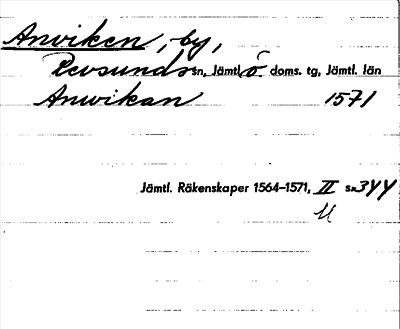 Anviken, by,
Revsunds sn, Jämtl. ö. doms. tg, Jämtl. län
Anwikan 1571
Jämtl. Räkenskaper 1564–1571, II s. 344